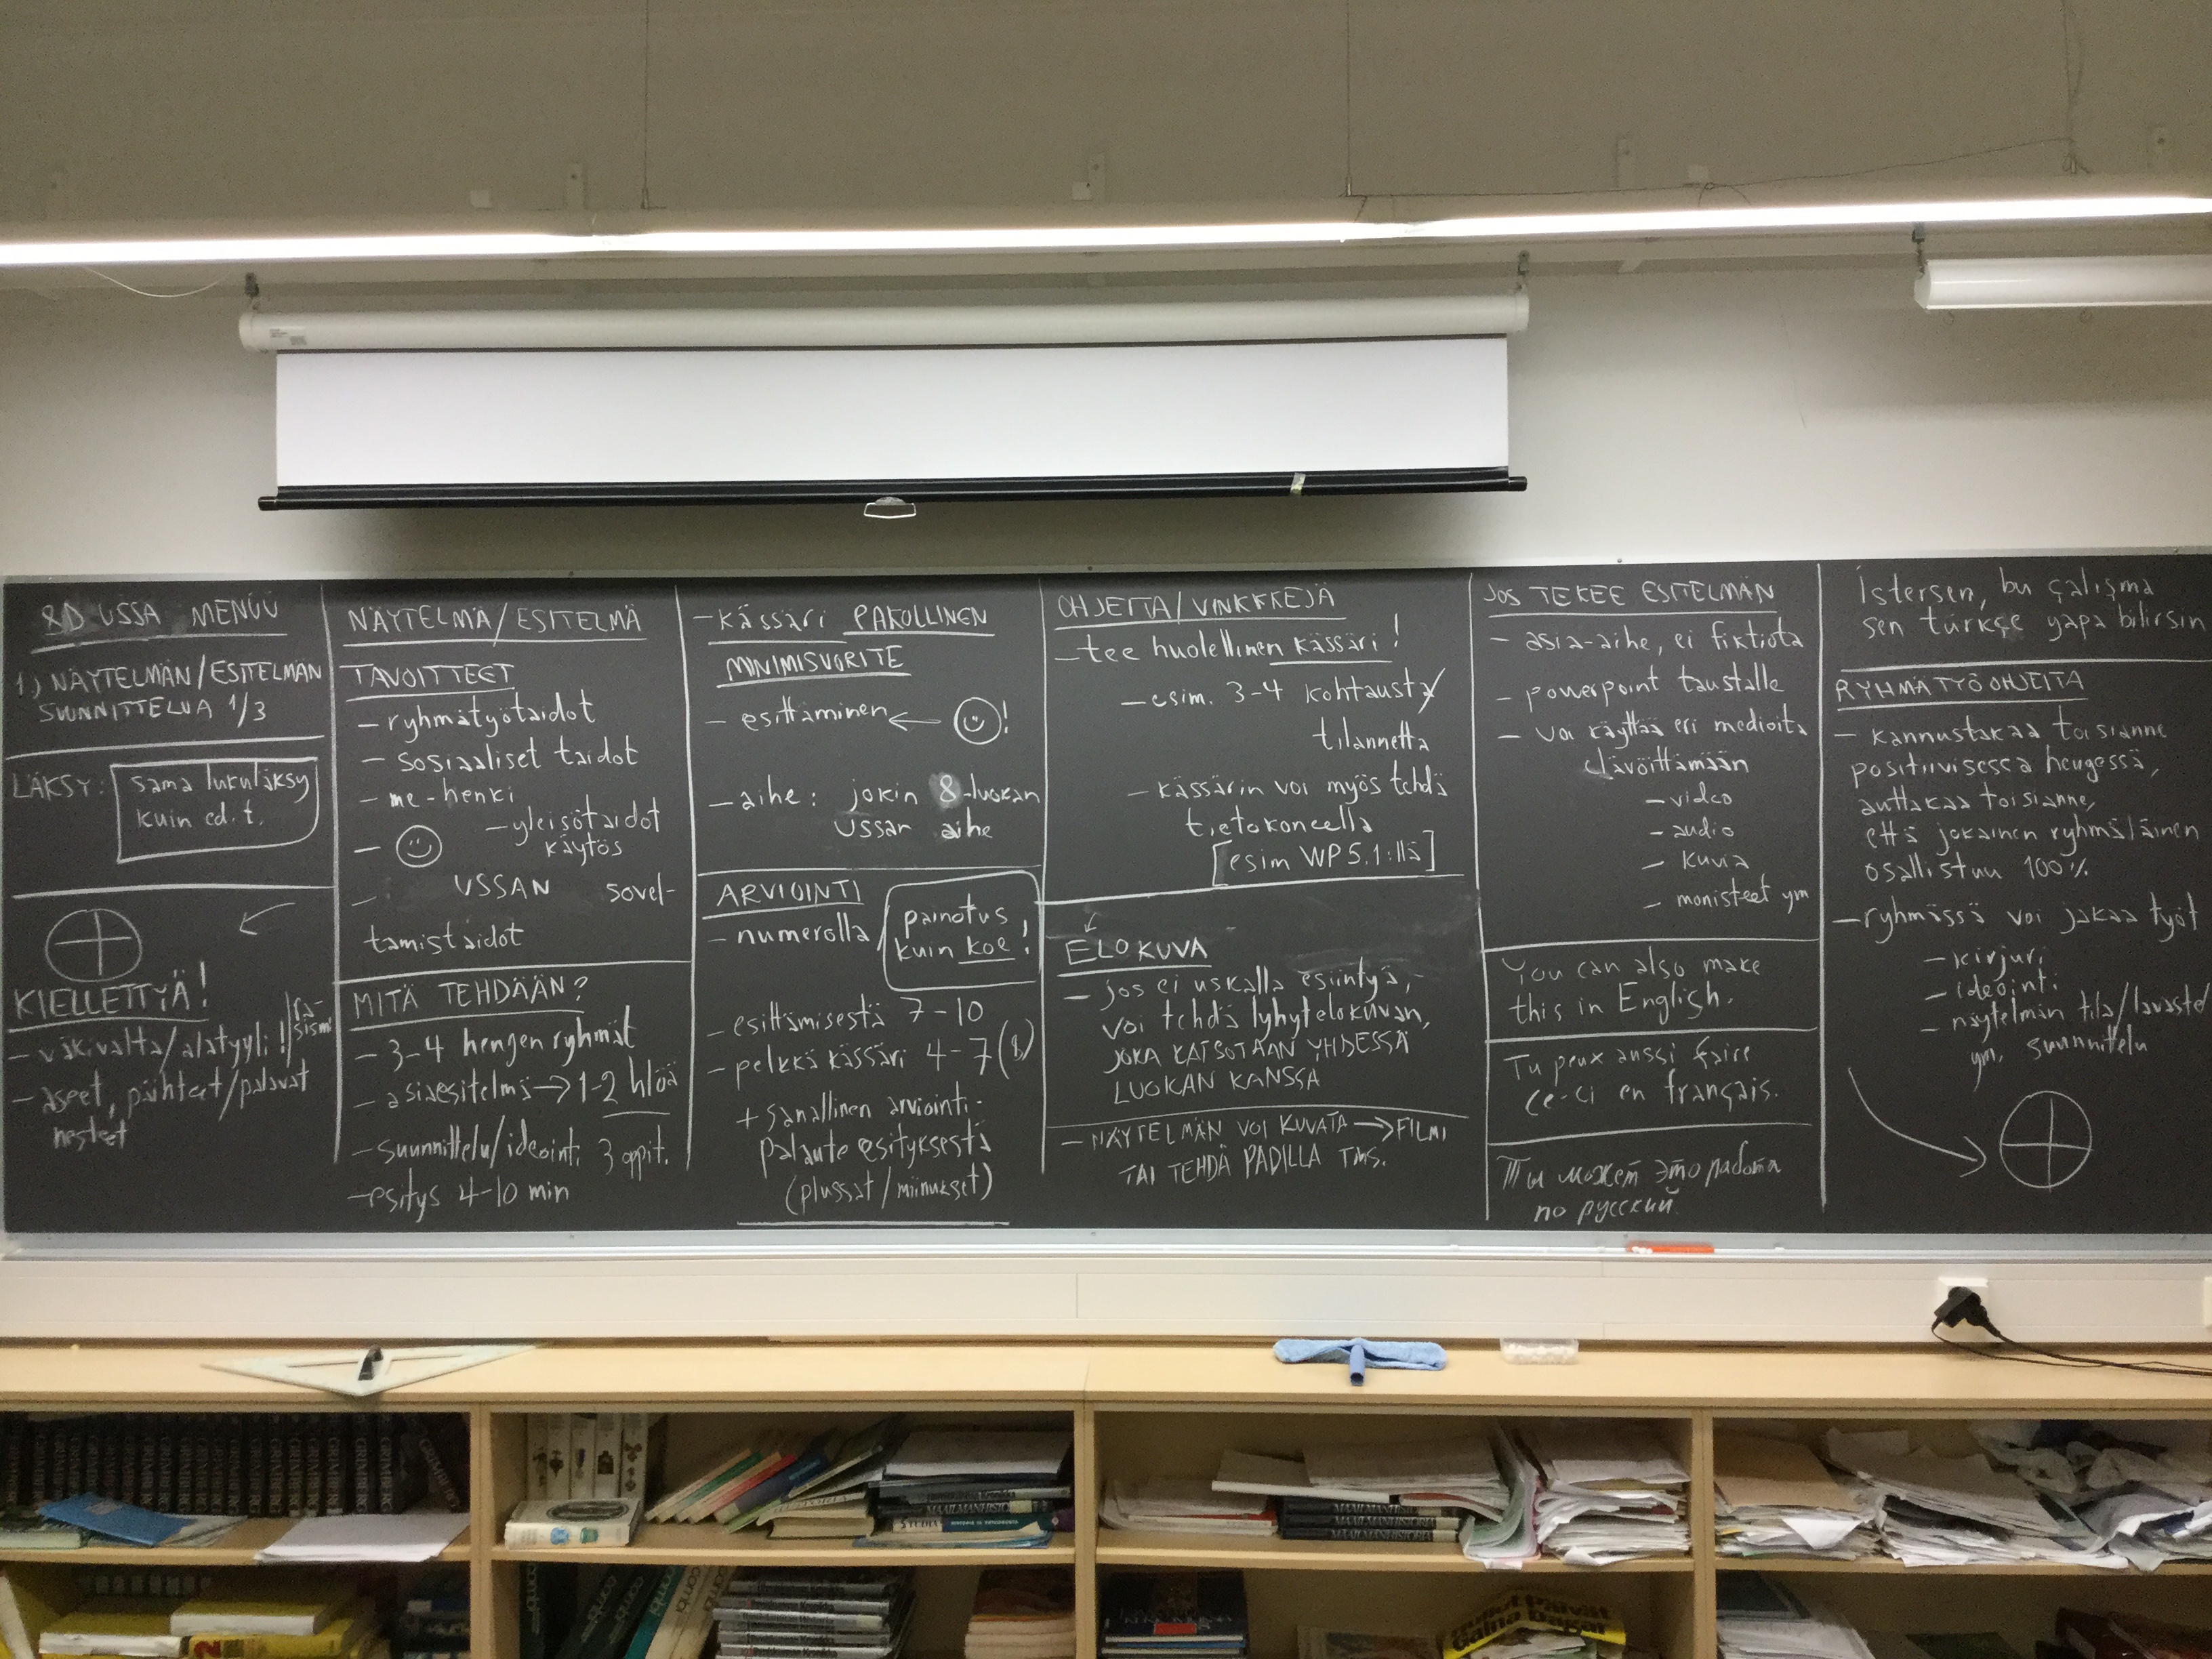 8D USSA MENUU
1.) NÄYTELMÄN/ESITELMÄN
SUUNNITTELUA 1/3
LÄKSY:
sama lukuläksy
kuin ed. t.
KIELLETTYÄ!
- väkivalta/alatyyli!
- aseet, päihteet/palavat
nesteet
NÄYTELMÄ/ESITELMÄ
TAVOITTEET
- ryhmätyötaidot
- sosiaaliset taidot
- me-henki
- yleisötaidot
käytös
USSAN sovel-
tamistaidot
MITÄ TEHDÄÄN?
- 3-4 hengen ryhmät
- asiaesitelmä → 1-2 hlöä
- suunnittelu/ideointi 3 oppit.
- esitys 4-10 min
- kässäri PAKOLLINEN
MINIMISUORITE
- esittäminen ← !
- aihe: jokin 8-luokan
ussan aihe
ARVIOINTI
- numerolla
painotus
kuin koe!
- esittämisestä 7-10
- pelkkä kässäri 4-7(8)
+ sanallinen arviointi-
palaute esityksestä
(plussat/miinukset)
OHJEITA/VINKKEJÄ
- tee huolellinen kässäri!
- esim. 3-4 kohtausta/
tilannetta
- kässärin voi myös tehdä
tietokoneella
[esim WP 5.1:llä]
ELOKUVA
- jos ei uskalla esiintyä,
voi tehdä lyhytelokuvan,
JOKA KATSOTAAN YHDESSÄ
LUOKAN KANSSA
- NÄYTELMÄN VOI KUVATA → FILMI
TAI TEHDÄ PADILLA TMS.
JOS TEKEE ESITELMÄN
- asia-aihe, ei fiktiota
- powerpoint taustalle
- voi käyttää eri medioita
elävöittämään
- video
- audio
- kuvia
- monisteet ym
You can also make
this in English.
Tu peux aussi faire
ce-ci en français.
Ты может это работа
по русский
İstersen, bu çalışma
sen türkçe yapa bilirsin
RYHMÄTYÖOHJEITA
- kannustakaa toisianne
positiivisessa hengessä,
auttakaa toisianne,
että jokainen ryhmäläinen
osallistuu 100%
- ryhmässä voi jakaa työt
- kirjuri
- ideointi
- näytelmän tila/lavaste/
ym. suunnittelu
MAAILMANHISTORIA
MAAILMANHISTORIA
MAAILMANHISTORIA
combi
combi